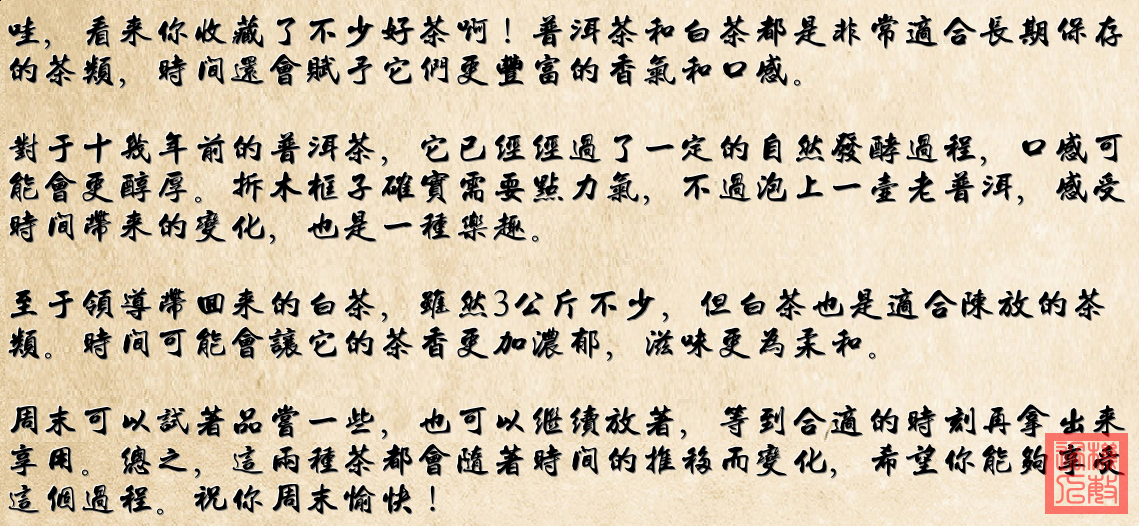 哇，看来你收藏了不少好茶啊！普洱茶和白茶都是非常適合長期保存
的茶類，時间還會賦予它們更豐富的香氣和口感。
對于十幾年前的普洱茶，它已經經過了一定的自然發酵過程，口感可
能會更醇厚。拆木框子確實需要點力氣，不過泡上一壺老普洱，感受
時间帶来的變化，也是一種樂趣。
至于領導帶回来的白茶，雖然3公斤不少，但白茶也是適合陳放的茶
類。時间可能會讓它的茶香更加濃郁，滋味更為柔和。
周末可以試著品嘗一些，也可以继续放著，等到合適的時刻再拿出来
享用。總之，這兩種茶都會隨著時间的推移而變化，希望你能夠享受
這個過程。祝你周末愉快！